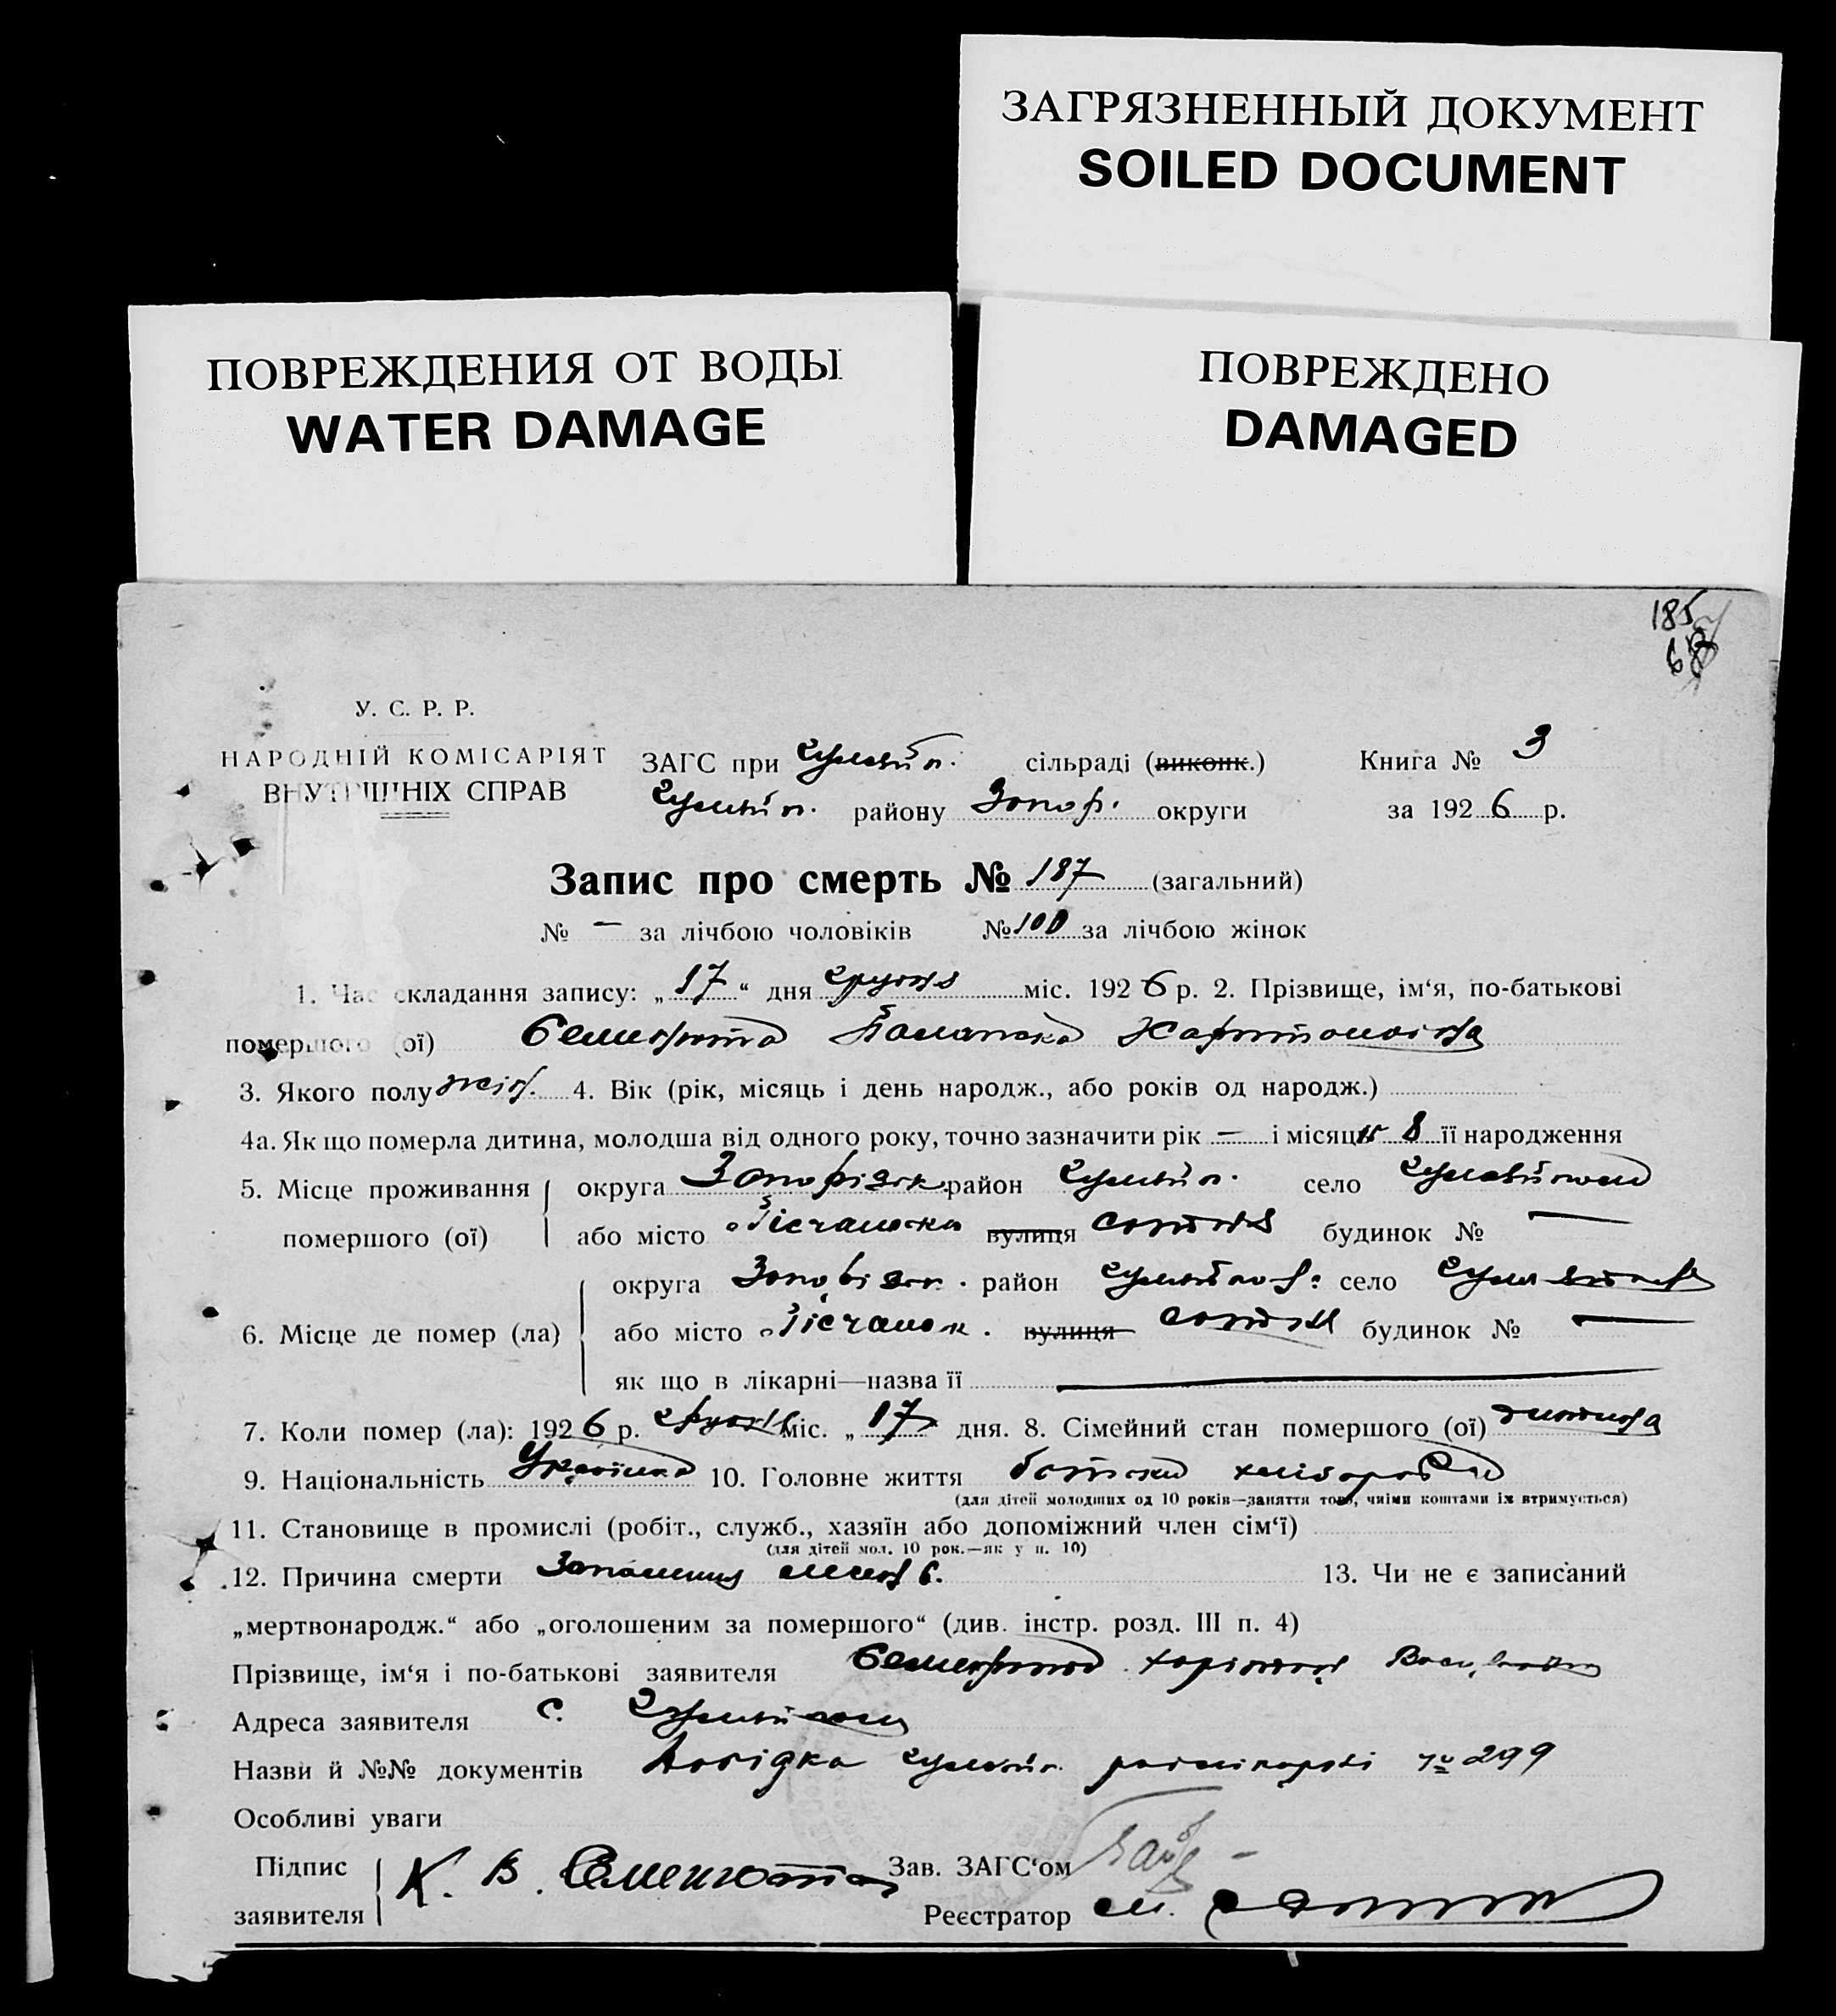 ЗАГРЯЗНЕННЫЙ ДОКУМЕНТ
SOILED DOCUMENT
ПОВРЕЖДЕНИЯ ОТ ВОДЫ
WATER DAMAGE
ПОВРЕЖДЕНО
DAMAGED
185
У. С. Р. Р.
НАРОДНІЙ КОМІСАРІЯТ
ВНУТРІШНІХ СПРАВ
ЗАГС при Гуляйп. сільраді (виконк.) Книга № 3
Гуляйп. району Запор. округи за 1926 р.
Запис про смерть № 187 (загальний)
№ — за лічбою чоловіків № 100 за лічбою жінок
1. Час складання запису: „17“ дня грудня міс. 1926 р. 2. Прізвище, ім‘я, по-батькові
помершого (ої) Семенюта Харитоновна
3. Якого полу жін. 4. Вік (рік, місяць і день народж., або років од народж.)
4а. Як що померла дитина, молодша від одного року, точно зазначити рік — і місяць 8 її народження
5. Місце проживання округа Запорізьк. район Гуляйп. село Гуляйполе
помершого (ої) або місто Пічанска вулиця сотня будинок № —
округа Запорізьк. район Гуляйпол. село Гуляйполе
6. Місце де помер (ла) або місто Пісчанск. вулиця сотня будинок № —
як що в лікарні—назва її —
7. Коли помер (ла): 1926 р. грудня міс. „17 дня. 8. Сімейний стан помершого (ої) дитина
9. Національність Українка 10. Головне життя батька хлібороб
(для дітей молодших од 10 років—заняття того, чиїми коштами їх втримується)
11. Становище в промислі (робіт., служб., хазяїн або допоміжний член сім‘ї)
(для дітей мол. 10 рок.—як у п. 10)
12. Причина смерти Запалення 13. Чи не є записаний
„мертвонародж.“ або „оголошеним за помершого“ (див. інстр. розд. III п. 4)
Прізвище, ім‘я і по-батькові заявителя Семенюта Харитон
Адреса заявителя с. Гуляйполе
Назви й №№ документів Довідка Гуляйп. райлікарні № 299
Особливі уваги
Підпис заявителя К. В. Семенюта Зав. ЗАГС‘ом
Реєстратор